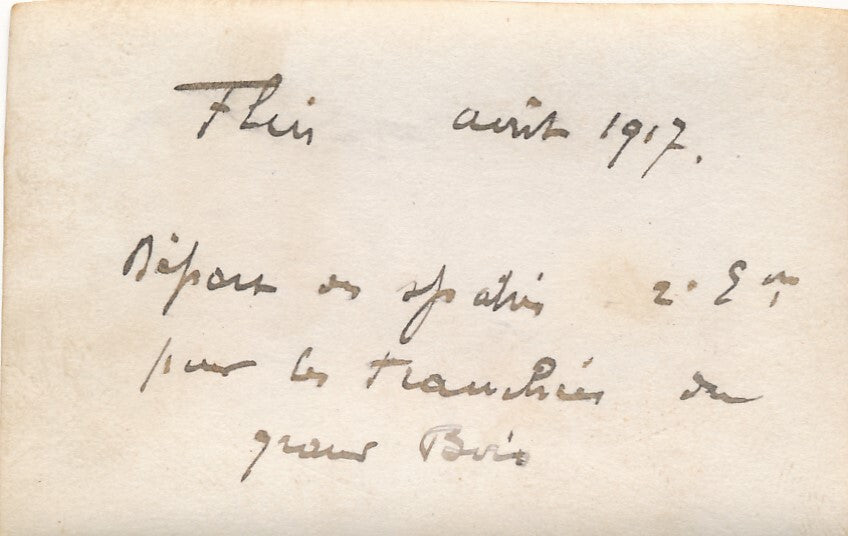 Flin août 1917.
Départ des spahis 2e Eon
pour les tranchées du
grand Bois